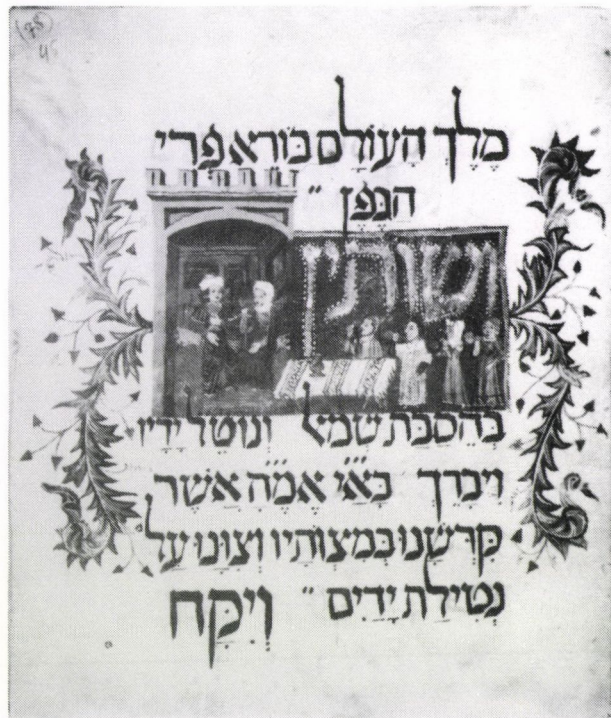 (75)
45
מֶלֶךְ הָעוֹלָם בּוֹרֵא פְּרִי
הַגֶּפֶן ״
ושותין
בְּהַסִבַּת שְׂמֹאל וְנוֹטֵל יָדָיו
וִיבָרֵךְ בָּאֵ֗יֿ אֱמָ֗הָ֗ אֲשֶׁר
קִדְּשָׁנוּ בְּמִצְוֹתָיו וְצִוָּנוּ עַל
נְטִילַת יָדַיִם ״ וְיִקַּח